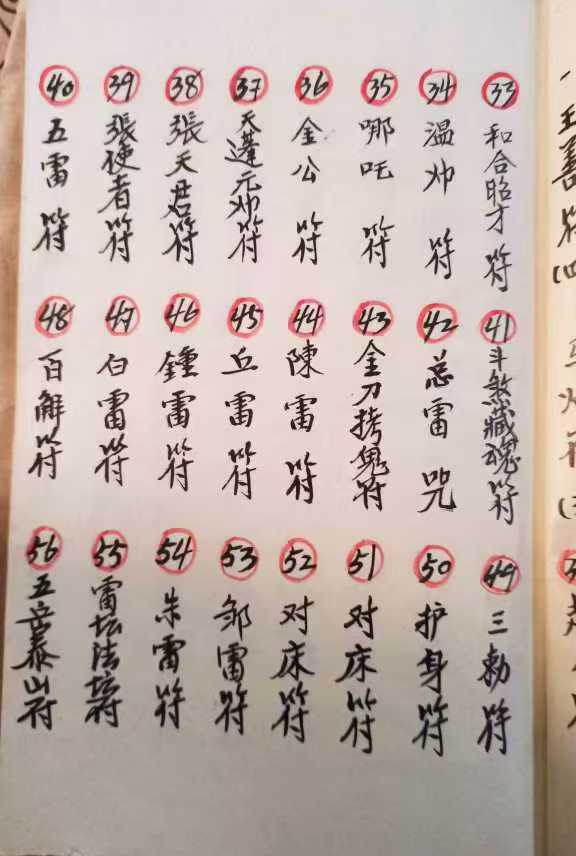 33 和合昭才符
34 温帅符
35 哪吒符
36 金公符
37 天蓬元帅符
38 張天君符
39 張使者符
40 五雷符
41 斗煞藏魂符
42 总雷咒
43 金刀拷鬼符
44 陳雷符
45 丘雷符
46 鍾雷符
47 白雷符
48 百解符
49 三勅符
50 护身符
51 对床符
52 对床符
53 邹雷符
54 朱雷符
55 雷坛法坛符
56 五岳泰山符